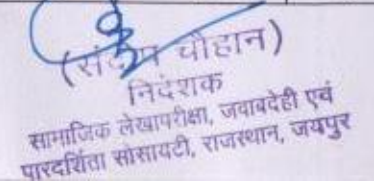 (संदीप चौहान)
निदेशक
सामाजिक लेखापरीक्षा, जवाबदेही एवं
पारदर्शिता सोसायटी, राजस्थान, जयपुर